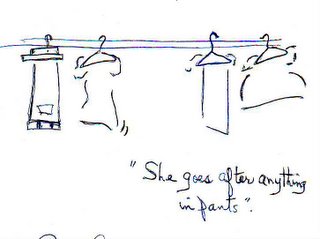 "She goes after anything
in pants".